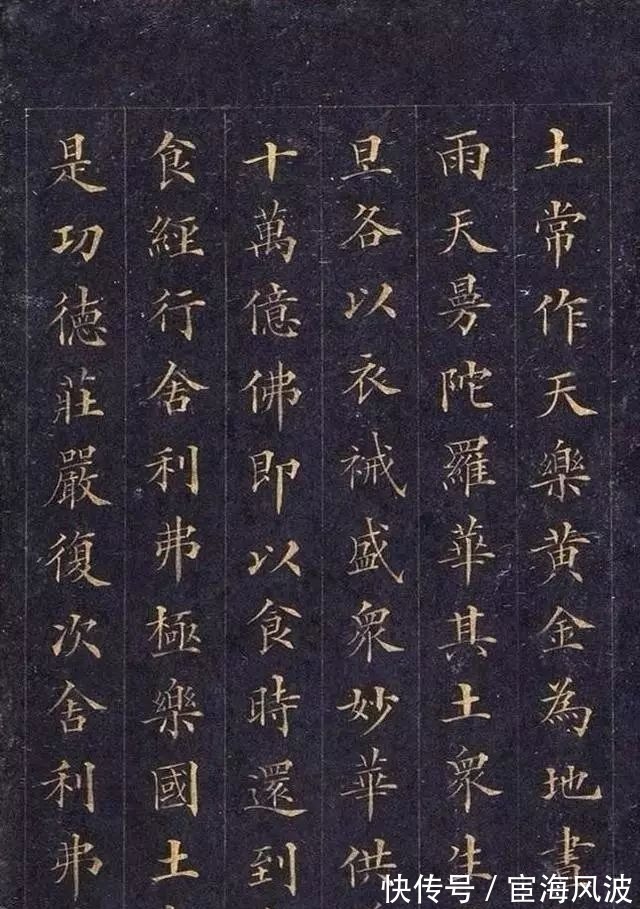 土常作天樂黃金為地晝
雨天曼陀羅華其土眾生
旦各以衣裓盛眾妙華供
十萬億佛即以食時還到
食經行舍利弗極樂國土
是功德莊嚴復次舍利弗
快传号 / 宦海风波